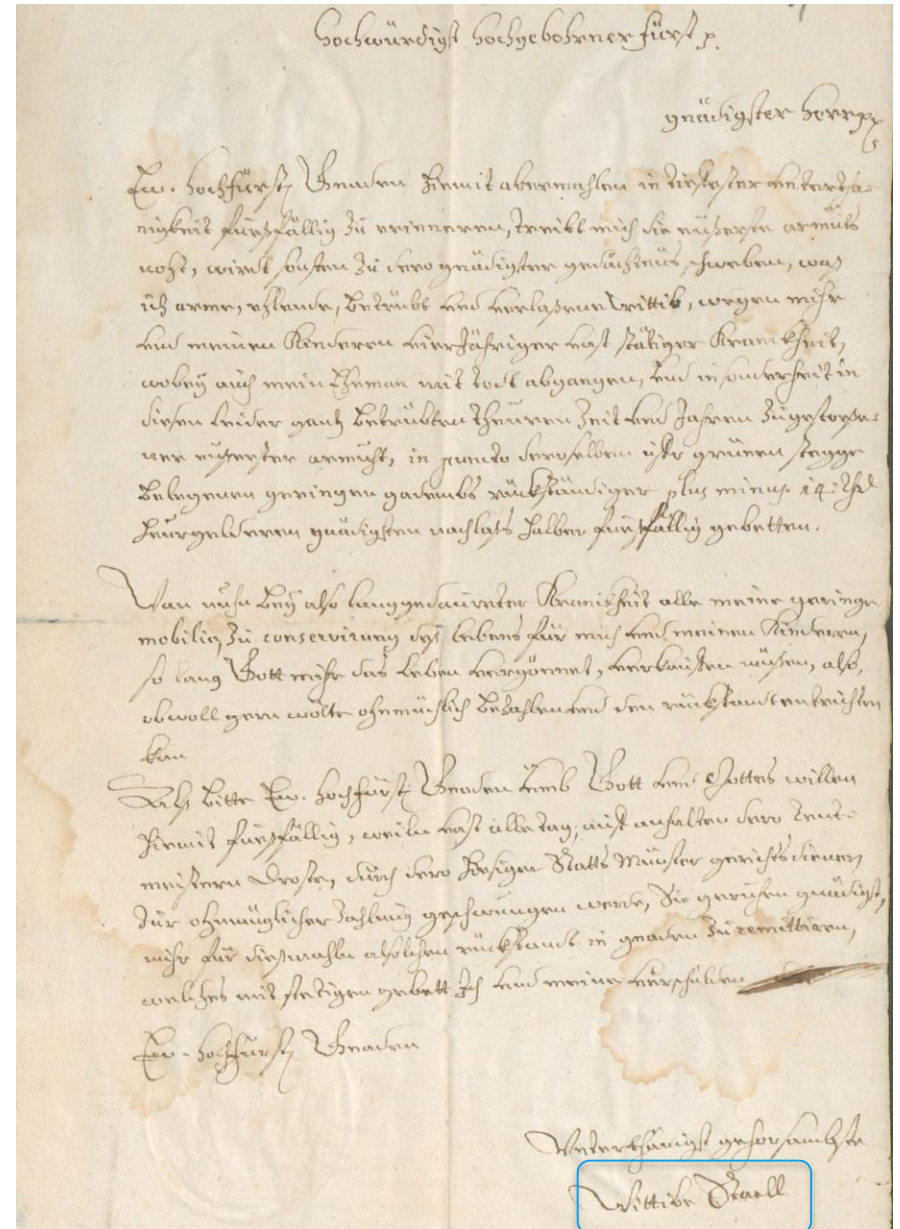 Hochwürdigst Hochgebohrner Fürst p.
gnädigster Herr pp
Ew. Hochfürstl Gnaden hiemit abermahlen in tiefester Untertha=
nigkeit fuesfällig zu erinneren, treibt mich die eußerste armuts
noht, wirdt sonsten zu dero gnädigster gedächtnus schweben, waß
ich arme, ehlende, betrübt und verlaßene Wittib, wegen mihr
und meinen Kinderen vierjähriger vast stätiger Kranckheit,
wobey auch mein Eheman mit todt abgangen, und insonderheit in
diesen leider gantz betrübten theuren Zeit und Jahren zugestoße=
ner eußerster armuht, in puncto deroselben grünen stegge
belegenen geringen gadembs rückständiger plus minus 14 Thl
heurgelderen gnädigsten nachlaß halber fuesfällig gebetten.
Wan nuhn bey also langgedaureter Kranckheit alle meine geringe
mobilia, zu conservirung deß lebens für mich und meinen Kinderen,
so lang Gott mihr das leben vergönnet, verkauffen müßen, also,
obwoll gern wolte ohnmüchlich bezahlen und den rückstandt entrichten
kan
Alß bitte Ew. Hochfürstl Gnaden umb Gott und Gottes willen
hiemit fuesfällig, weiln vast alle tag, auff anhalten dero rent=
meisteren Droste, durch dero hiesiger Statts Münster gerichtsdiener,
zur ohnmüglicher zahlung gezwungen werde, Sie geruhen gnädigst,
mihr für dießmahln alsolchen rückstandt in gnaden zu remittiren,
welches mit stetigen gebett Ich und meine verschulden
Ew. Hochfürstl Gnaden
Unterthänigst gehorsambste
Wittibe Staell